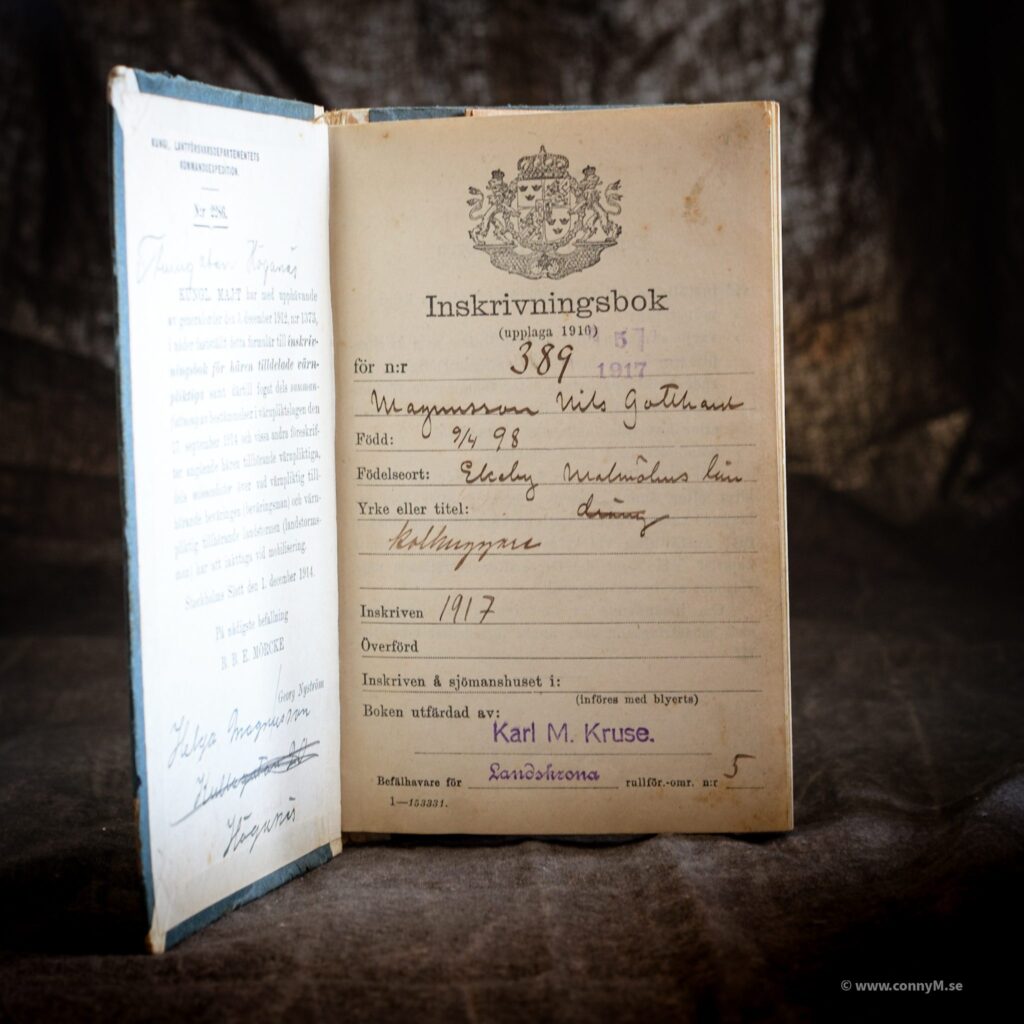 KUNGL. LANTFÖRSVARSDEPARTEMENTETS
KOMMANDOEXPEDITION.
N:r 2286.
Höganäs
KUNGL. MAJ:T har med upphävande
av generalorder den 3 december 1912, nr 1373,
i nåder fastställt detta formulär till inskriv-
ningsbok för hären tilldelade värn-
pliktiga samt därtill fogat dels
av bestämmelser i värnpliktslagen den
17. september 1914 och vissa andra föreskrif-
ter angående hären tillhörande värnpliktiga,
dels över vad värnpliktig till-
hörande beväringen (beväringsman) och värn-
pliktig tillhörande landstormen (landstorms-
man) har att iakttaga vid mobilisering.
Stockholms Slott den 1. december 1914.
På nådigste befallning
B. B. E. MÖRCKE
Georg Nyström
Helga Magnusson
Höganäs
Inskrivningsbok
(upplaga 1916)
5
1917
för n:r 389
Magnusson Nils Gotthard
Född: 9/4 98
Födelseort: Malmöhus län
Yrke eller titel: dräng
kolhuggare
Inskriven 1917
Överförd
Inskriven å sjömanshuset i:
(införes med blyerts)
Boken utfärdad av:
Karl M. Kruse.
Befälhavare för Landskrona rullför.-omr. n:r 5
1—153331.
© www.connyM.se